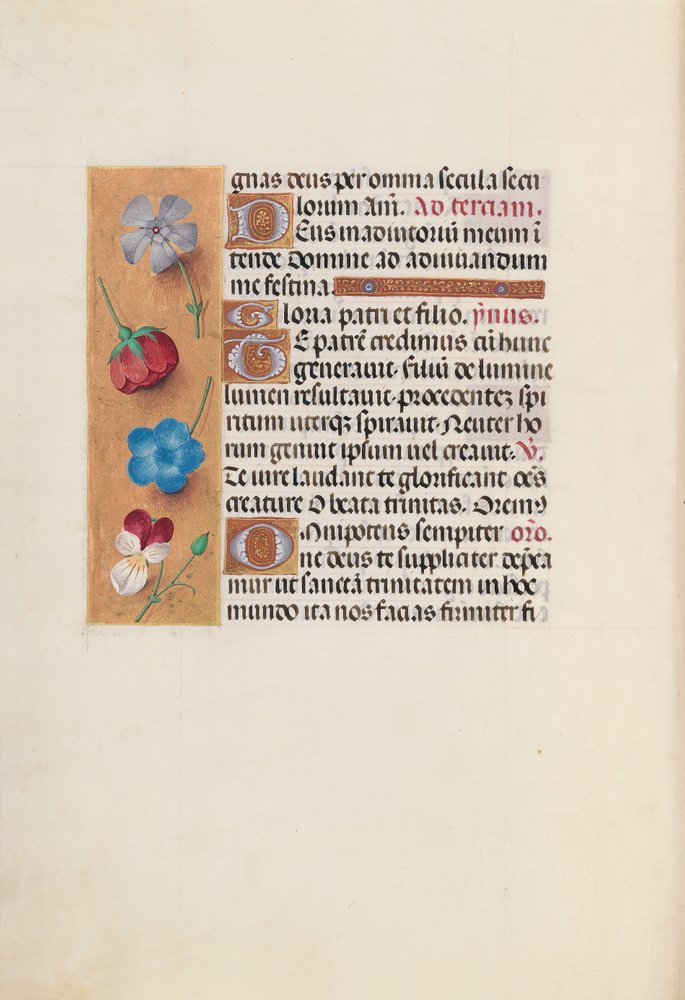 gnas deus per omnia secula secu
lorum Am̄. Ad terciam.
Deus in adiutoriū meum ī
tende Domine ad adiuuandum
me festina
Gloria patri et filio. ẏnus.
Te patrē credimus cū hunc
generauit. filiū de lumine
lumen resultauit. procedentez spi
ritum uterqz spirauit. Neuter ho
rum genuit ipsum uel creauit. V̄.
Te iure laudant te glorificant oēs
creature O beata trinitas. Oremꝰ
Omnipotens sempiter orō.
ne deus te suppliciter dep̄ca
mur ut sanctā trinitatem in hoc
mundo ita nos facias firmiter fi